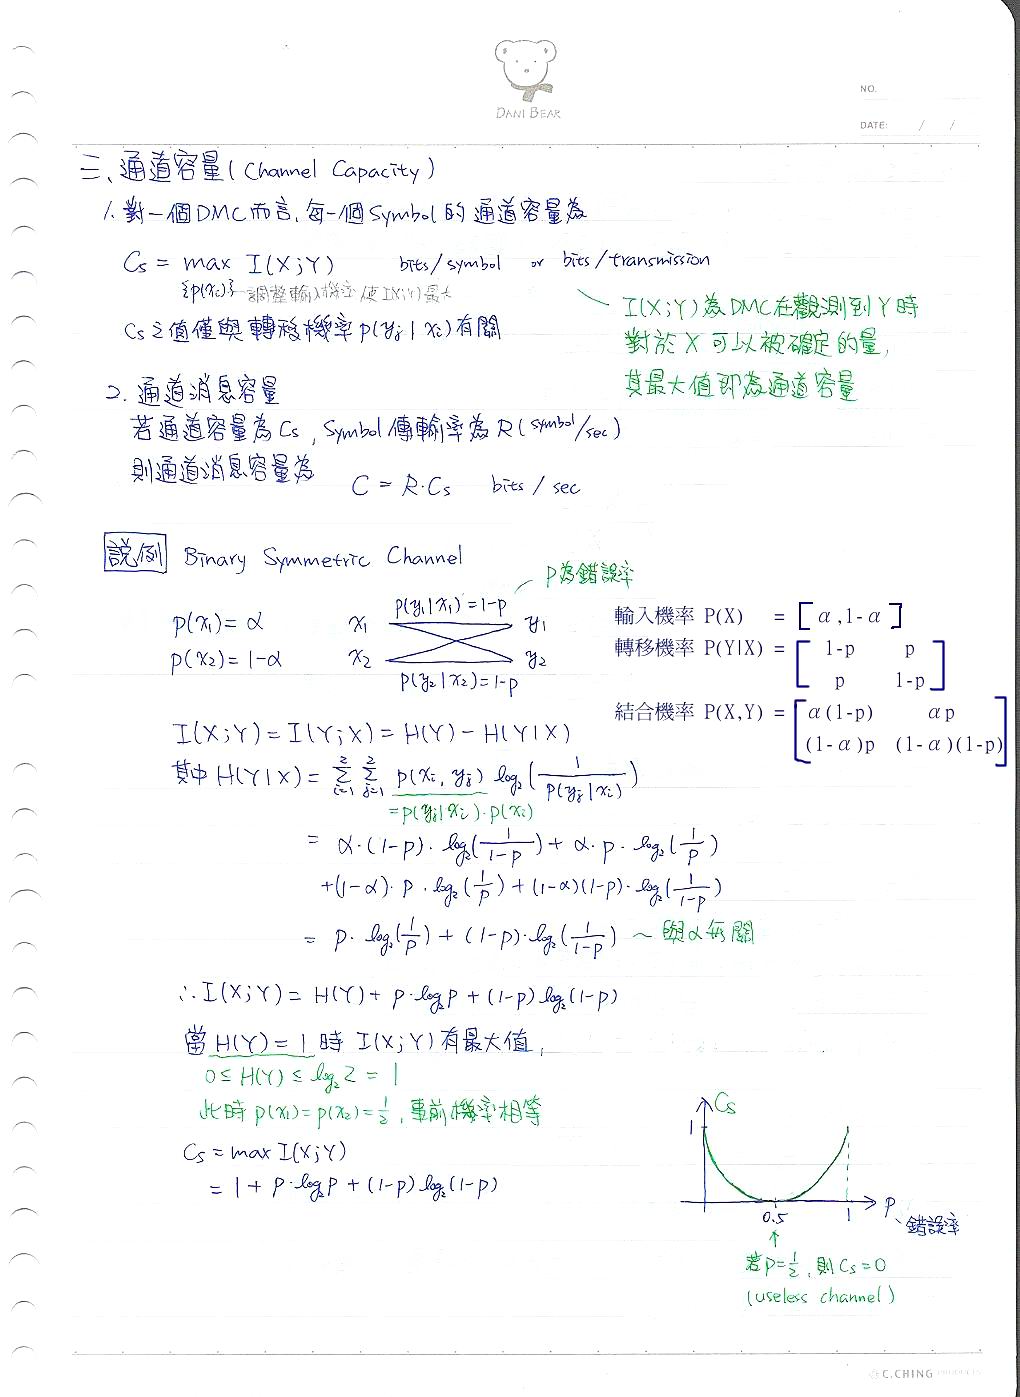 DANI BEAR
NO.
DATE: / /
三、通道容量(Channel Capacity)
1. 對一個DMC而言,每一個symbol的通道容量為
Cs = max I(X;Y) bits/symbol or bits/transmission
{p(xi)} 調整輸入機率使I(X;Y)最大
I(X;Y)為DMC在觀測到Y時
對於X可以被確定的量,
其最大值即為通道容量
Cs之值僅與轉移機率p(yj|xi)有關
2. 通道消息容量
若通道容量為Cs,symbol傳輸率為R(symbol/sec)
則通道消息容量為
C = R·Cs bits/sec
說例 Binary Symmetric Channel
p為錯誤率
p(x1) = α x1 p(y1|x1)=1-p y1
p(x2) = 1-α x2 p(y2|x2)=1-p y2
輸入機率 P(X) = [α,1-α]
轉移機率 P(Y|X) = [1-p p
p 1-p]
結合機率 P(X,Y) = [α(1-p) αp
(1-α)p (1-α)(1-p)]
I(X;Y) = I(Y;X) = H(Y) - H(Y|X)
其中 H(Y|X) = Σ(i=1→2) Σ(j=1→2) p(xi, yj) log2(1/p(yj|xi))
=p(yj|xi)·p(xi)
= α·(1-p)·log2(1/(1-p)) + α·p·log2(1/p)
+(1-α)·p·log2(1/p) + (1-α)(1-p)·log2(1/(1-p))
= p·log2(1/p) + (1-p)·log2(1/(1-p)) ~ 與α無關
∴ I(X;Y) = H(Y) + p·log2p + (1-p)log2(1-p)
當 H(Y) = 1 時 I(X;Y)有最大值,
0≤H(Y)≤log2 2 = 1
此時p(x1)=p(x2)=1/2,事前機率相等
Cs = max I(X;Y)
= 1 + p·log2p + (1-p)log2(1-p)
Cs
1
0.5 1 p、錯誤率
↑
若p=1/2,則Cs=0
(useless channel)
C.CHING PRODUCTS